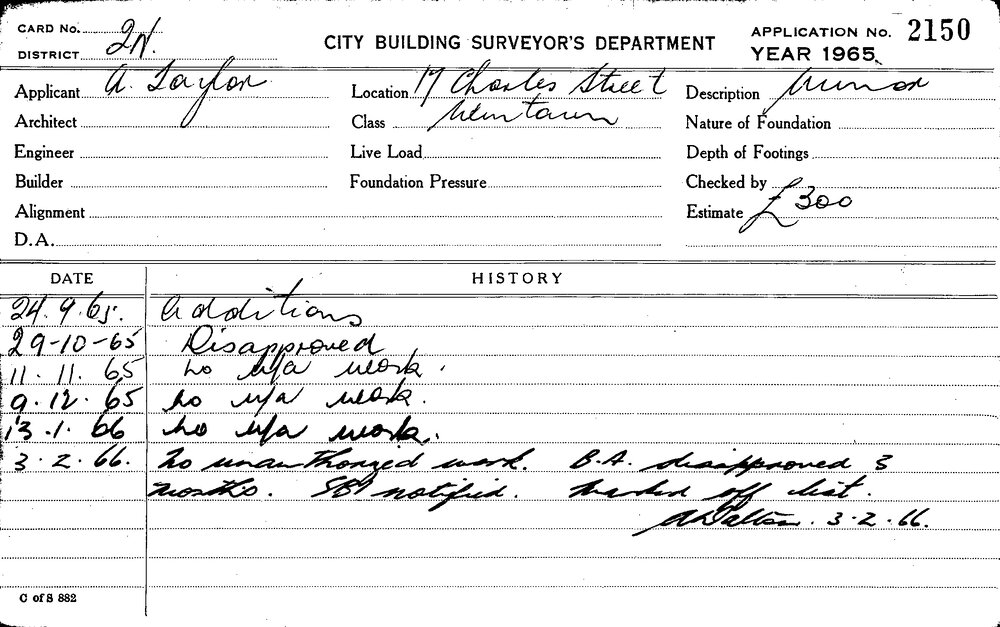 CARD No. CITY BUILDING SURVEYOR'S DEPARTMENT APPLICATION No. 2150
DISTRICT 2N. YEAR 1965
Applicant A. Taylor Location 17 Charles Street Description Minor
Architect Class Newtown Nature of Foundation
Engineer Live Load Depth of Footings
Builder Foundation Pressure Checked by
Alignment Estimate £300
D.A.
DATE HISTORY
24.9.65. Additions
29-10-65 Disapproved
11.11.65 no u/a work.
9.12.65 no u/a work.
13.1.66 no u/a work.
3.2.66. No unauthorized work. B.A. disapproved 3
months. SBI notified. Marked off list.
3.2.66.
C of S 882